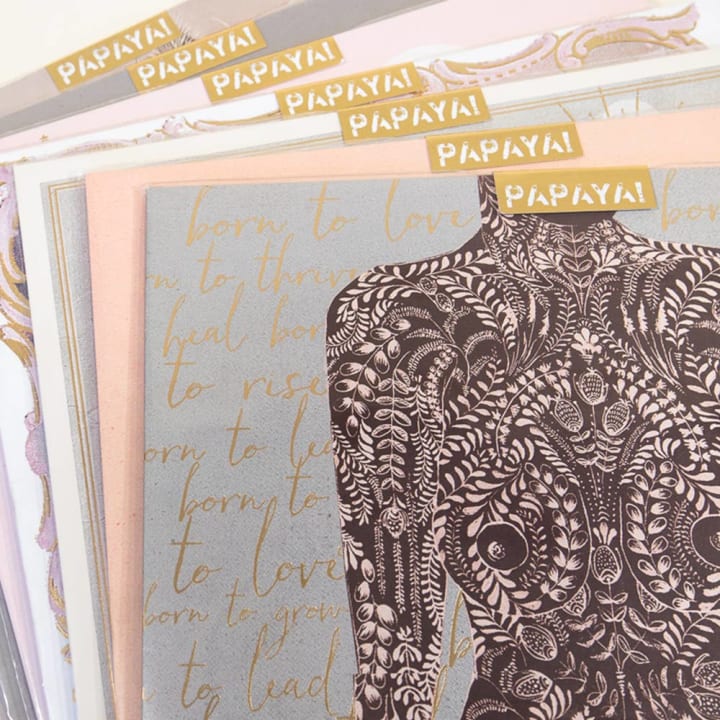 PAPAYA!
PAPAYA!
PAPAYA!
PAPAYA!
PAPAYA!
PAPAYA!
PAPAYA!
born to love
born
to thrive
heal born
to rise
born to lea
born to
to love
born to grow
born to lead